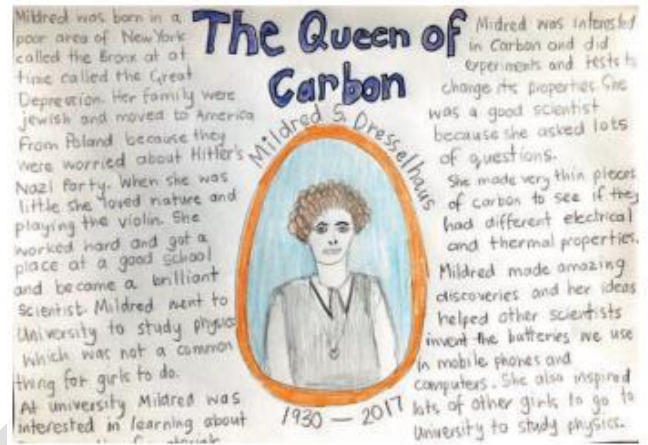 The Queen of
Carbon
Mildred S. Dresselhaus
Mildred was born in a
poor area of New York
called the Bronx at at
time called the Great
Depression. Her family were
jewish and moved to America
From Poland because they
were worried about Hitler's
Nazi Party. When she was
little she loved nature and
playing the violin. She
worked hard and got a
place at a good school
and became a brilliant
Scientist. Mildred went to
University to study physics
which was not a common
thing for girls to do.
At university Mildred was
interested in learning about
Midred was interested
in Carbon and did
experiments and tests to
change its properties. She
was a good scientist
because she asked lots
of questions.
She made very thin pieces
of carbon to see if they
had different electrical
and thermal properties.
Mildred made amazing
discoveries and her ideas
helped other scientists
invent the batteries we use
in mobile phones and
computers. She also inspired
lots of other girls to go to
University to study physics.
1930 — 2017